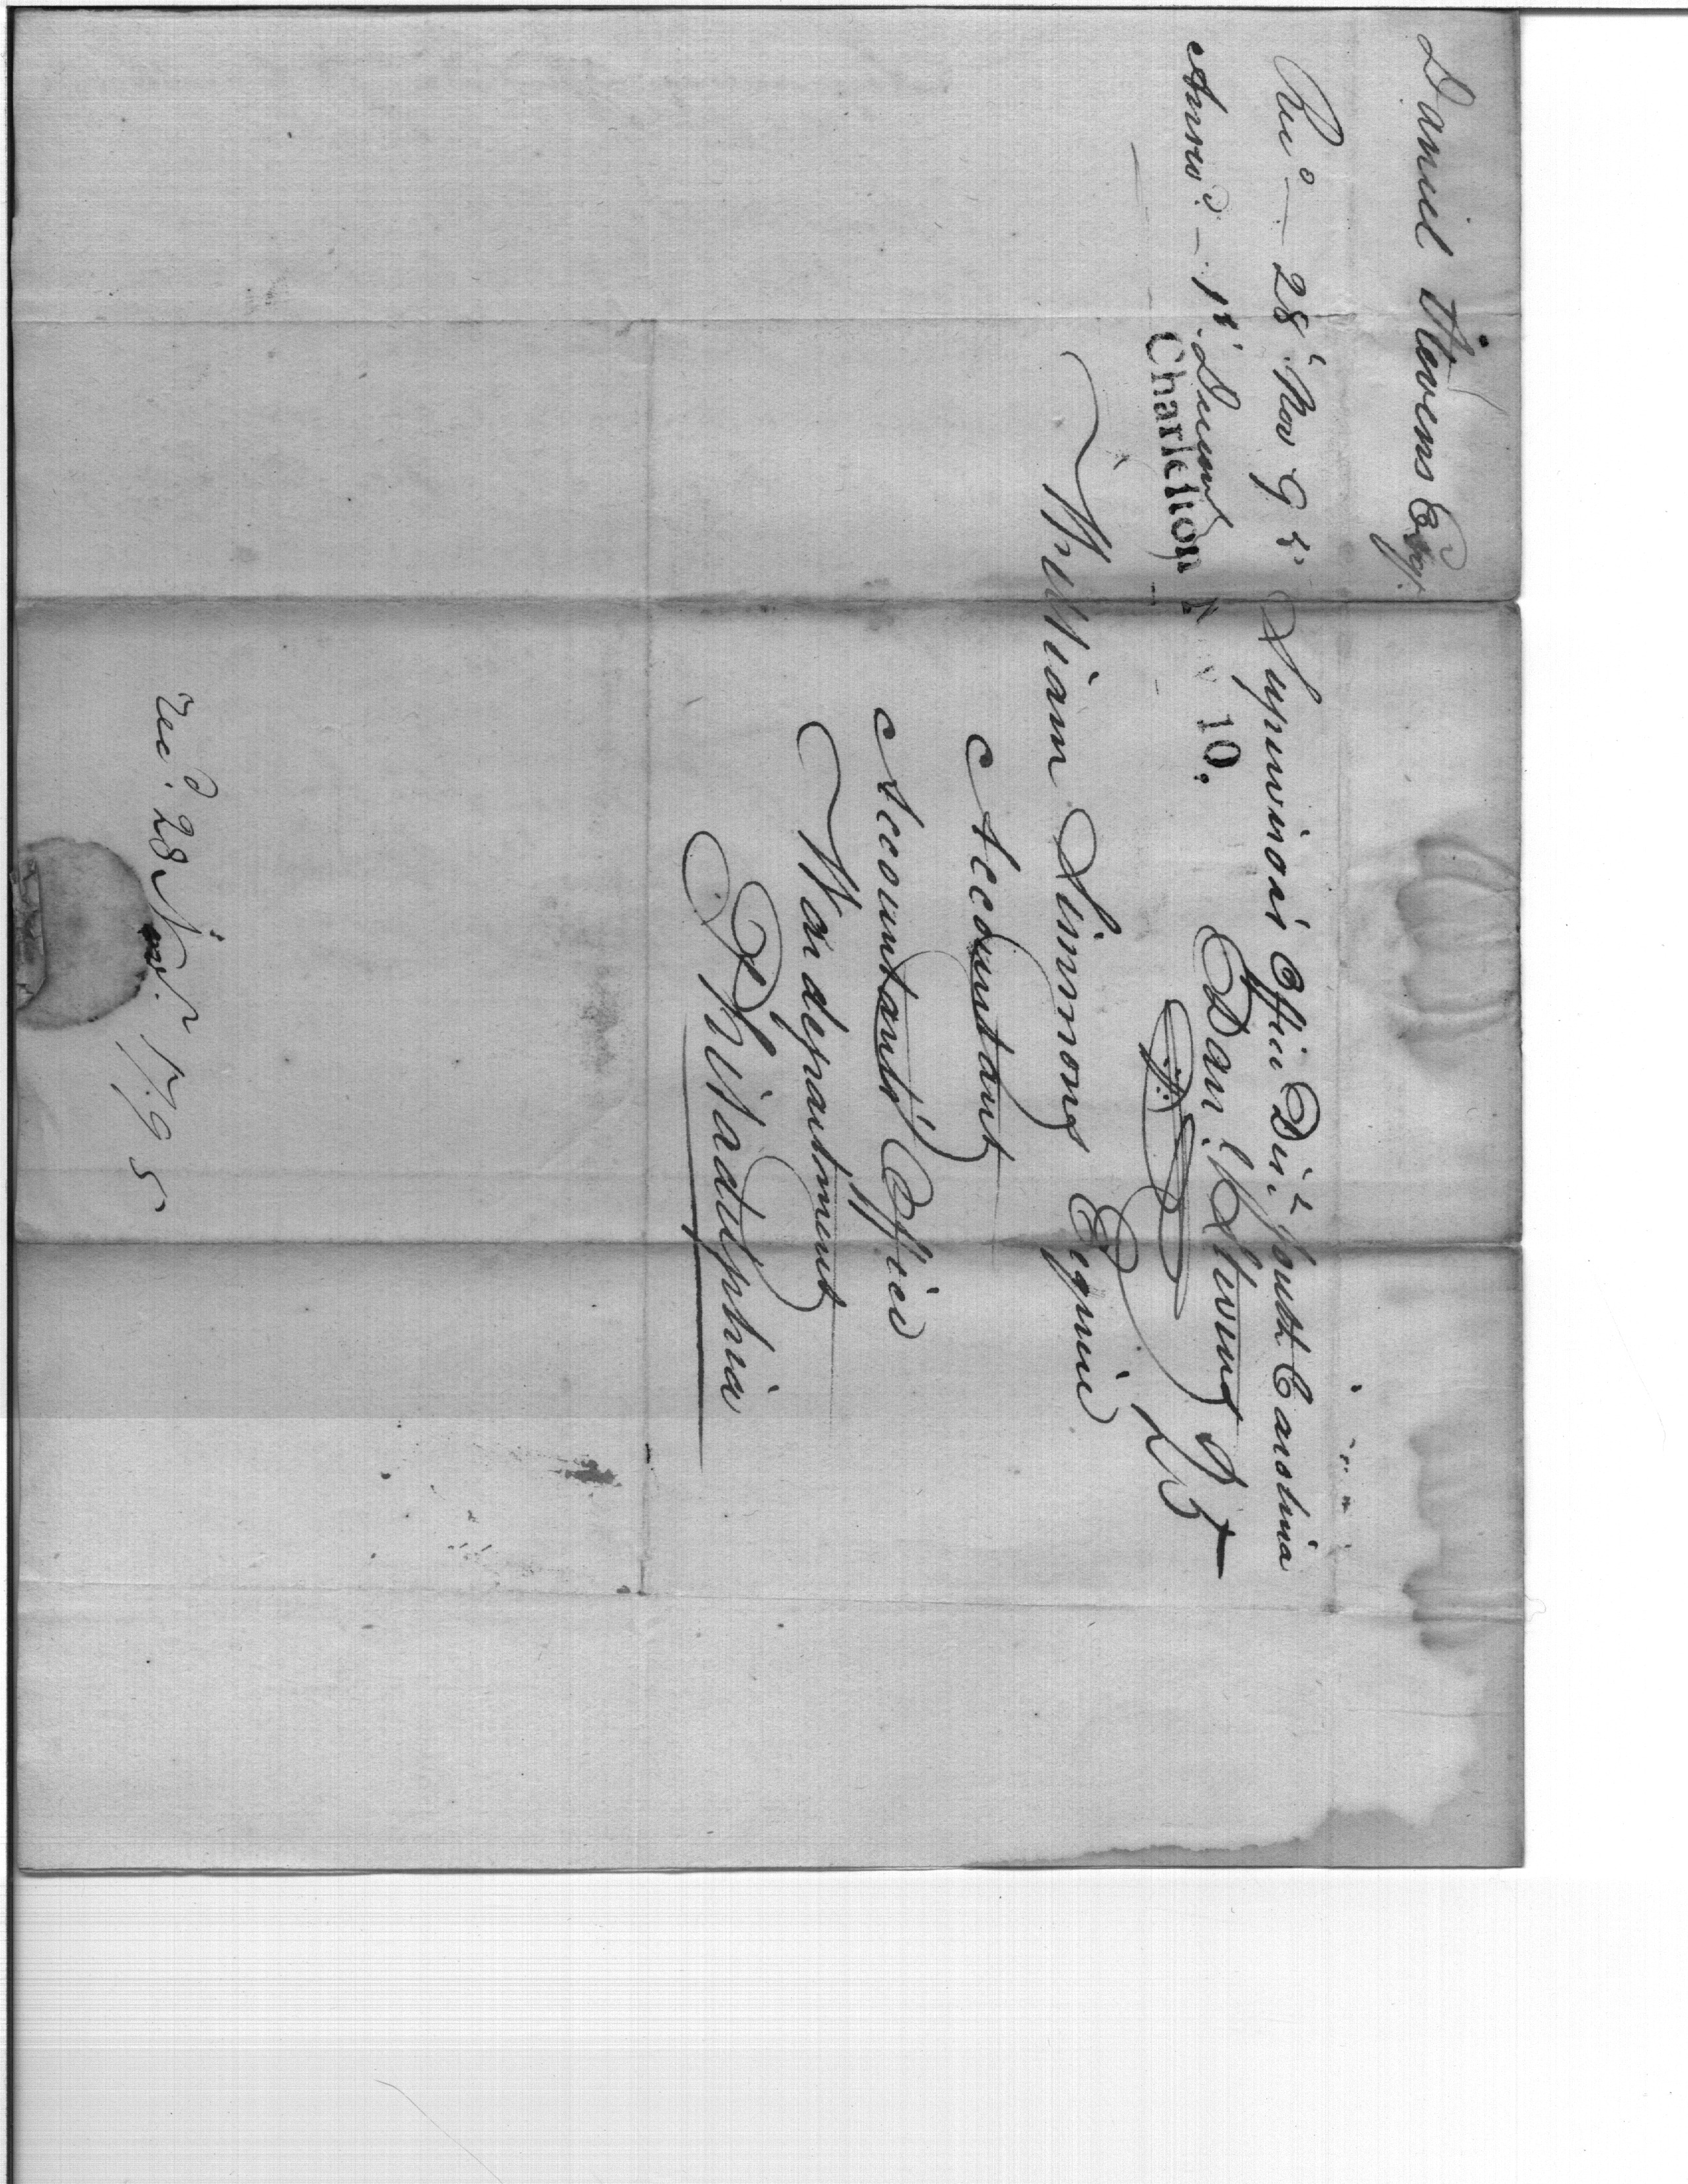 Daniel Stevens Esqr.
Rec.d — 28 Nov 95. Supervisors Office Dist. South Carolina
Answ.d — 1st Decemr
Charleston N v 10.
Dan.l Stevens
William Simmons Esquire
Accountant
Accountants Office
War department
Philadelphia
Rec.d 28 Novr. 1795